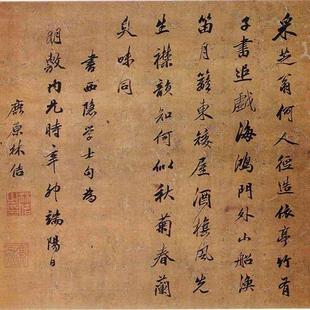 采芝翁何人徑造依亭竹有
子書追戲海鴻門外山船漁
笛月籬東矮屋酒風先
生襟韻知何似秋菊春蘭
臭味同
書西隱學士句為
敷內兄時辛卯端陽日
鹿原林佶